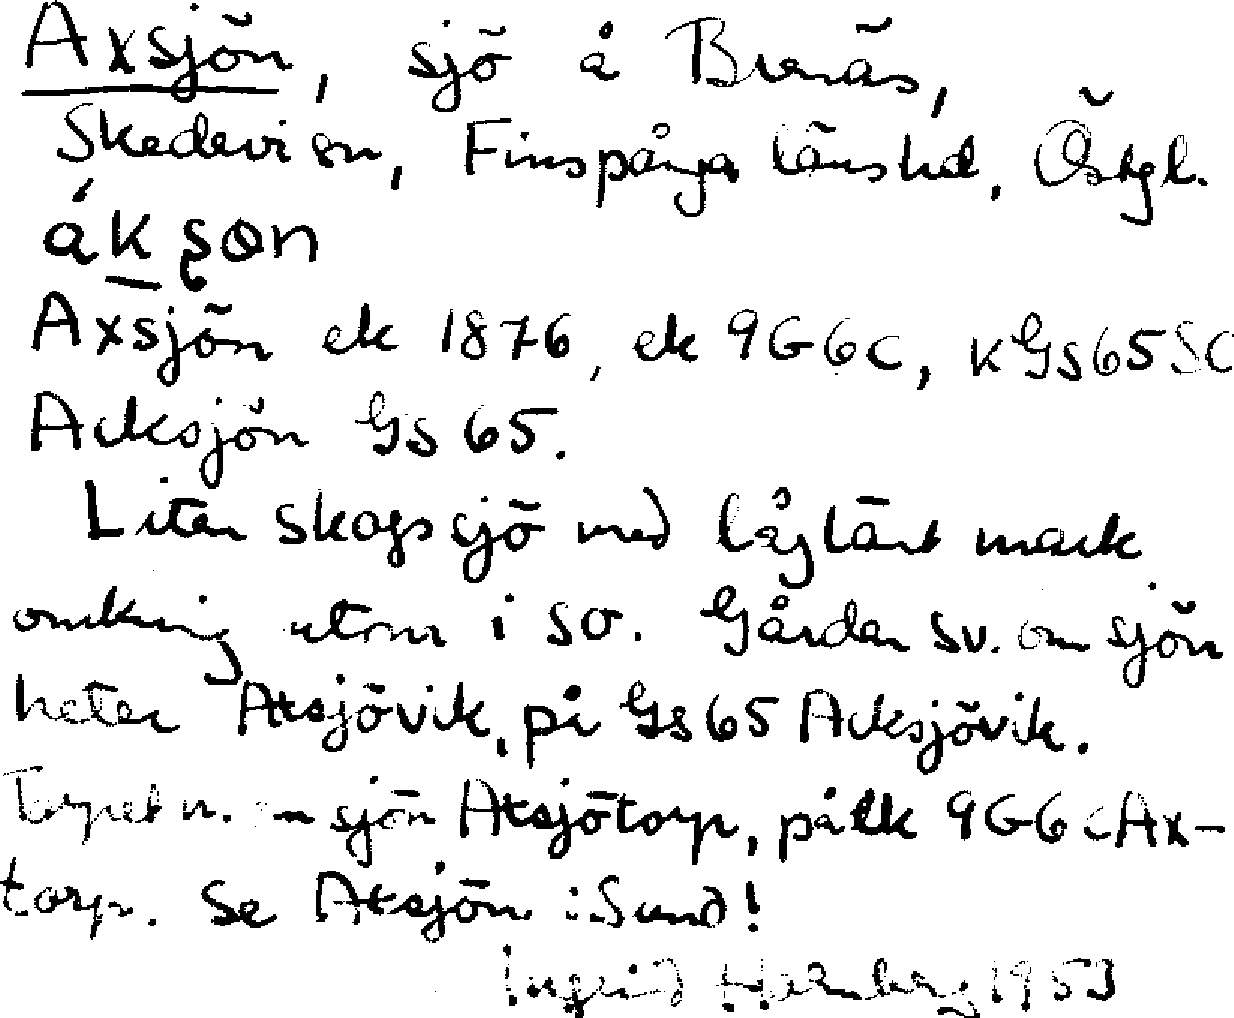 Axsjön, sjö å Brenäs,
Skedevi sn, Finspånga länshd, Östgl.
Axsjön ek 1876, ek 9G6c, KGS65SC
Acksjön GS 65.
Liten skogssjö med låglänt mark
omkring utom i so. Gården sv. om sjön
heter Axsjövik, på GS65 Acksjövik.
Torpet n. om sjön Axsjötorp, på ek 9G6c Ax-
torp. Se Axsjön i Sund!
Ingrid Holmberg 1953